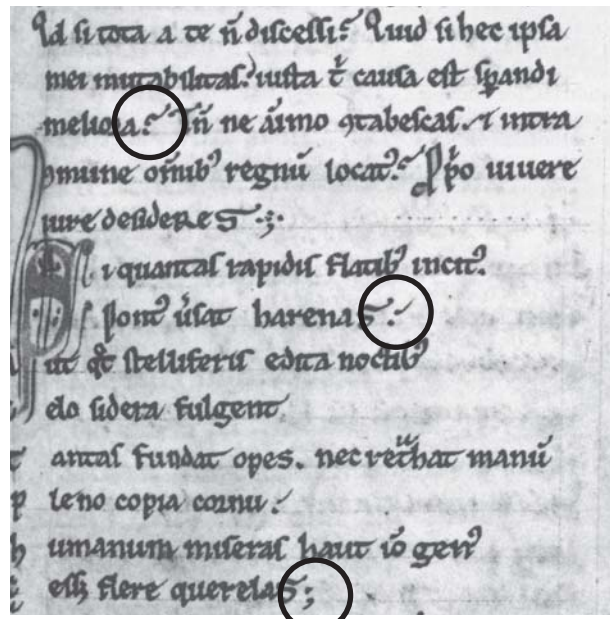 Qd si tota a te n̄ discessi? Quid si hec ipsa
mei mutabilitas? iusta t̄ causa est sꝑandi
meliora? Tn̄ ne aīmo ꝯtabescas. ⁊ intra
ꝯmune om̄ib⁹ regnū locat⁹? ꝓpͥo uiuere
iure desideres.
I quantas rapidis flatib⁹ incit⁹
Pont⁹ ūsat harenas.
ut qͦt stelliferis edita noctib⁹
elo sidera fulgent
antas fundat opes. nec ret͛hat manū
leno copia cornu.
umanum miseras haut iō gen⁹
essꝫ flere querelas;